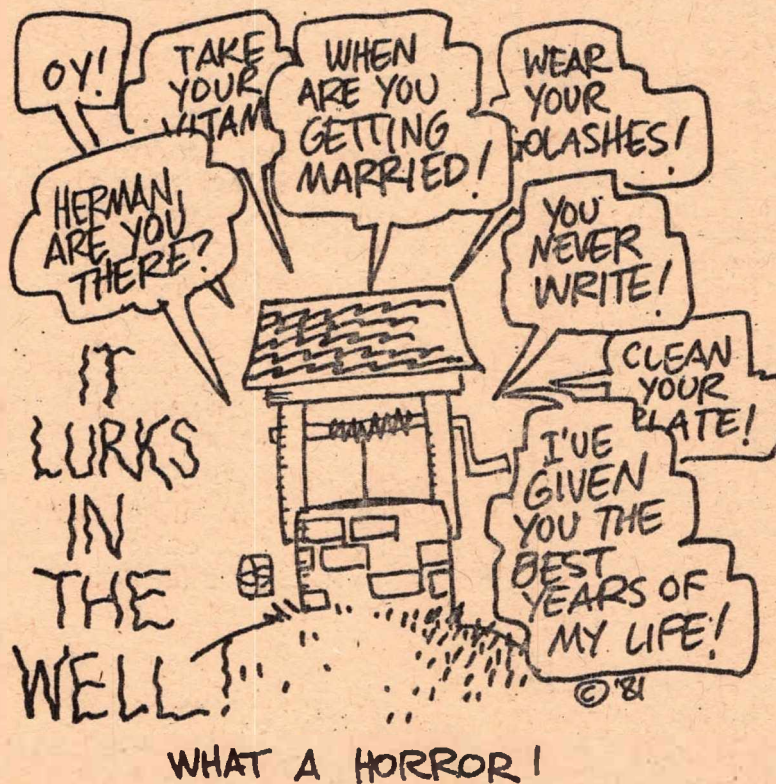 OY!
TAKE
YOUR
VITAM
WHEN
ARE YOU
GETTING
MARRIED!
WEAR
YOUR
GOLASHES!
HERMAN,
ARE YOU
THERE?
YOU
NEVER
WRITE!
CLEAN
YOUR
PLATE!
I'VE
GIVEN
YOU THE
BEST
YEARS OF
MY LIFE!
IT
LURKS
IN
THE
WELL!
© '81
WHAT A HORROR!